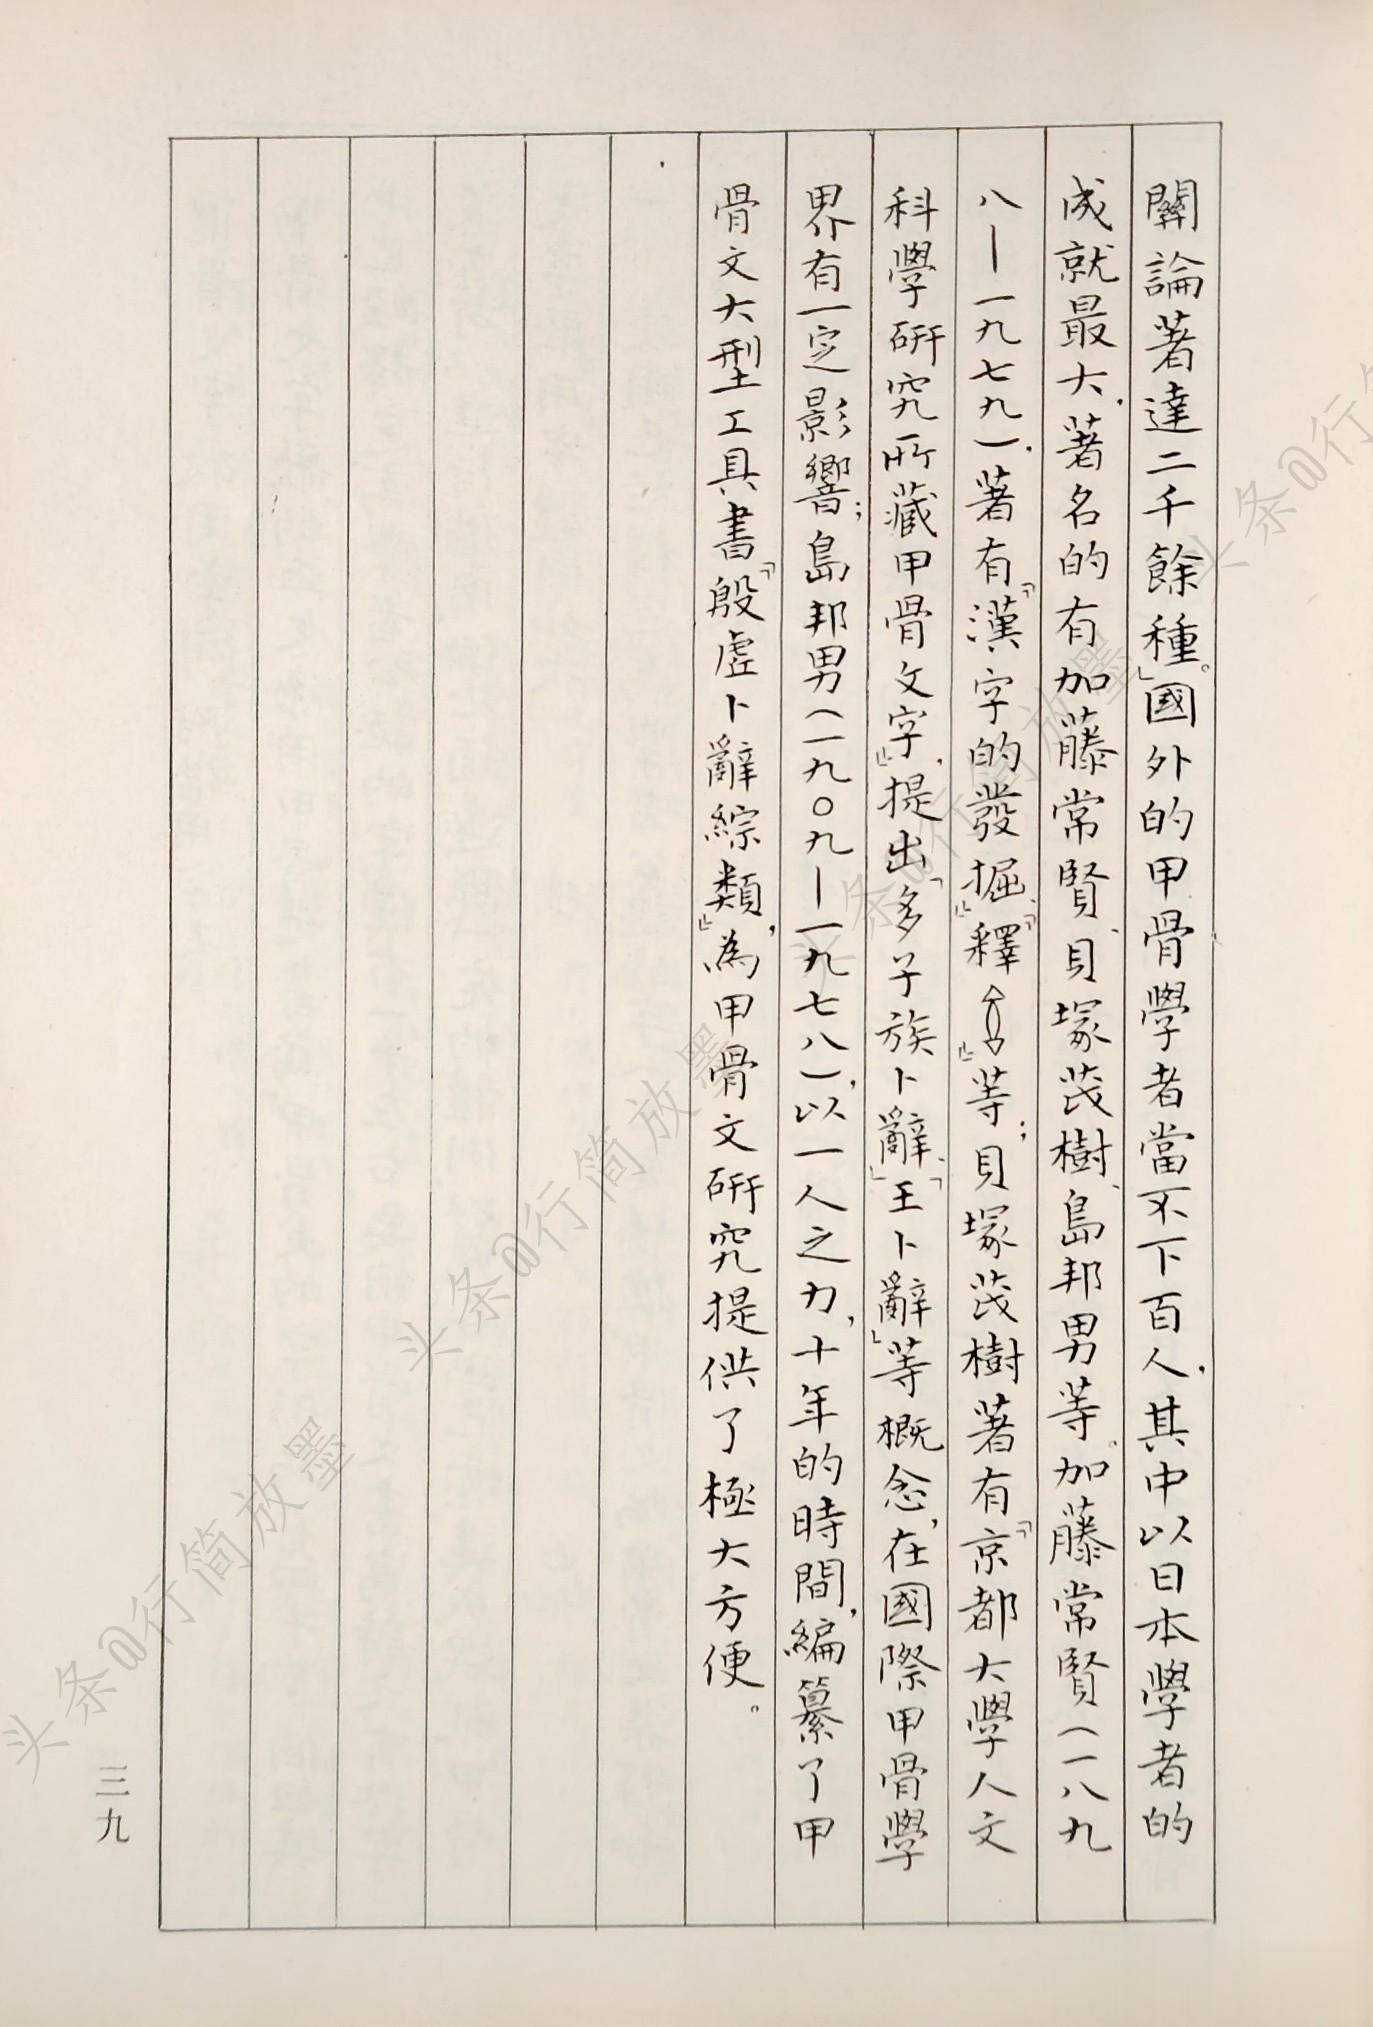 關論著達二千餘種。」國外的甲骨學者當不下百人，其中以日本學者的
成就最大，著名的有加藤常賢、貝塚茂樹、島邦男等。加藤常賢（一八九
八—一九七九），著有『漢字的發掘』、『釋』等；貝塚茂樹著有『京都大學人文
科學研究所藏甲骨文字』，提出「多子族卜辭」、「王卜辭」等概念，在國際甲骨學
界有一定影響；島邦男（一九〇九—一九七八），以一人之力，十年的時間，編纂了甲
骨文大型工具書『殷虛卜辭綜類』，為甲骨文研究提供了極大方便。
三九
头条@行简放墨
头条@行简放墨
头条@行简放墨
头条@行简